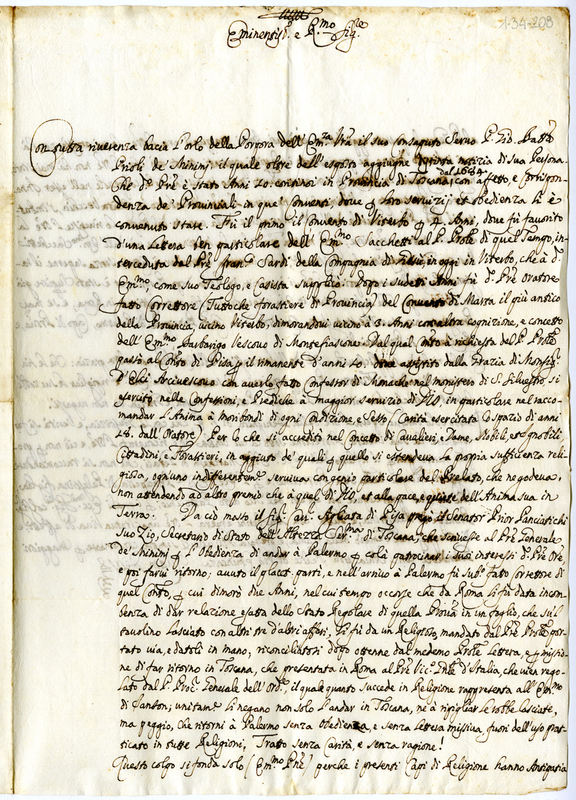 1-34-208
Eminentiss.o e R.mo Sig.re
Con tutta riverenza bacia l'orlo della Porpora dell' Em.za Vra il suo consaputo Servo P. Gio. Batta
Prioli de Minimi, il quale oltre dell' esposto aggiugne notizia di sua Persona.
dal 1684
Che d.o Pre è stato Anni 10. continui in Provincia di Toscana, con affetto, e corrispon
denza de' Provinciali in que' Conventi, dove p loro servizj et obedienza li è
convenuto stare. Fù il primo il Convento di Viterbo p 4. Anni, dove fù favorito
d'una Lettera ben particolare dell' Em.mo Sacchetti al P. Prole di quel Tempo, in
terceduta dal Pre Fran.o Sardi della Compagnia di Giesù, in oggi in Viterbo, che è d.o
Em.mo come suo Teologo, e Casista supplico: Dopo i sudetti Anni fù d.o Pre Oratore
fatto Correttore (Tuttoche forastiere di Provincia) del Convento di Marta il più antico
della Provincia, vicino Viterbo, dimorandovi vicino à 3. Anni con altra cognizione, e concetto
dell' Em.mo Barbarigo Vescovo di Montefiascone. Dal qual Con.to è richiesta del P. Prole
passò al Con.to di Pisa p il rimanente d'anni 10. dove assistito dalla Grazia di Monsig.r
D'Elci Arcivescovo con averlo fatto Confessor di Monache nel monistero di S. Silvestro, si
esercitò nelle Confessioni, e Prediche à maggior servizio di Dio, in particolare nel racco
mandar l'Anima à moribondi di ogni Condizione, e Sesso (Carità esercitata lo spazio di anni
18. dall' Oratore) Per lo che si accreditò nel Concetto di Cavalieri, e Dame, Nobili, et ignobili
Cittadini, e Forastieri, in aggiuto de' quali p quello si estendeva la propria sufficienza reli
giosa, ognuno indifferentem.te serviva con genio particolare del Prelato, che ne godeva
non attendendo ad altro premio che à quel di Dio, et alla pace, e quiete dell' Anima sua in
Terra. Da ciò mosso il Sig. Cav. Agliata di Pisa pregò il Senator Prior Panciatichi
suo Zio, Secretario di Stato dell' Altezza Ser.ma di Toscana, che scrivesse al Pre Generale
de' Minimi p l'Obedienza di andar à Palermo p colà patrocinar i suoi interessi d.o Pre Ore
e poi farvi ritorno; avuto il placet partì, e nell'arrivo à Palermo fù sub.o fatto Correttore di
quel Con.to, p cui dimorò due Anni, nel cui tempo occorse che da Roma li fù data incom
benza di dar relazione esatta dello Stato Regolare di quella Prov.a in un foglio, che sul
tavolino lasciato con altri tre d'altri affari, li fù da un Religioso, mandato dal Pre Prole, por
tato via, e datoli in mano, riconciliatosi dopo ottenne dal medemo Prole Lettera, e p missio
ne di far ritorno in Toscana, che presentata in Roma al Pre Vic.o Gnle d'Italia, che vien rego
lato dal P. Proc. Generale dell' Ord.e, il quale quanto succede in Religione rappresenta all' Em.mo
di Janson; unitam.te li negano non solo l'andar in Toscana, nè à ripigliar le robbe lasciate,
ma peggio, che ritorni à Palermo senza obedienza, e senza Lettera missiva, fuori dell' uso prat
ticato in tutte Religioni, Tratto senza Carità, e senza ragione!
Questo colpo si fonda solo (Em.mo Pnpe) perche i presenti Capi di Religione hanno Antipatia